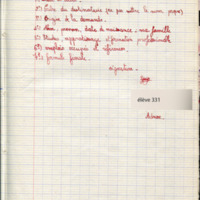 2°) Titre du destinataire (ne pas mettre le nom propre)
3°) Origine de la demande.
4°) Nom, prénom, date de naissance, une famille
5°) Etudes, apprentissage et formation professionnelle
6°) emplois et références.
formule finale.
signature.
élève 331
Adresse